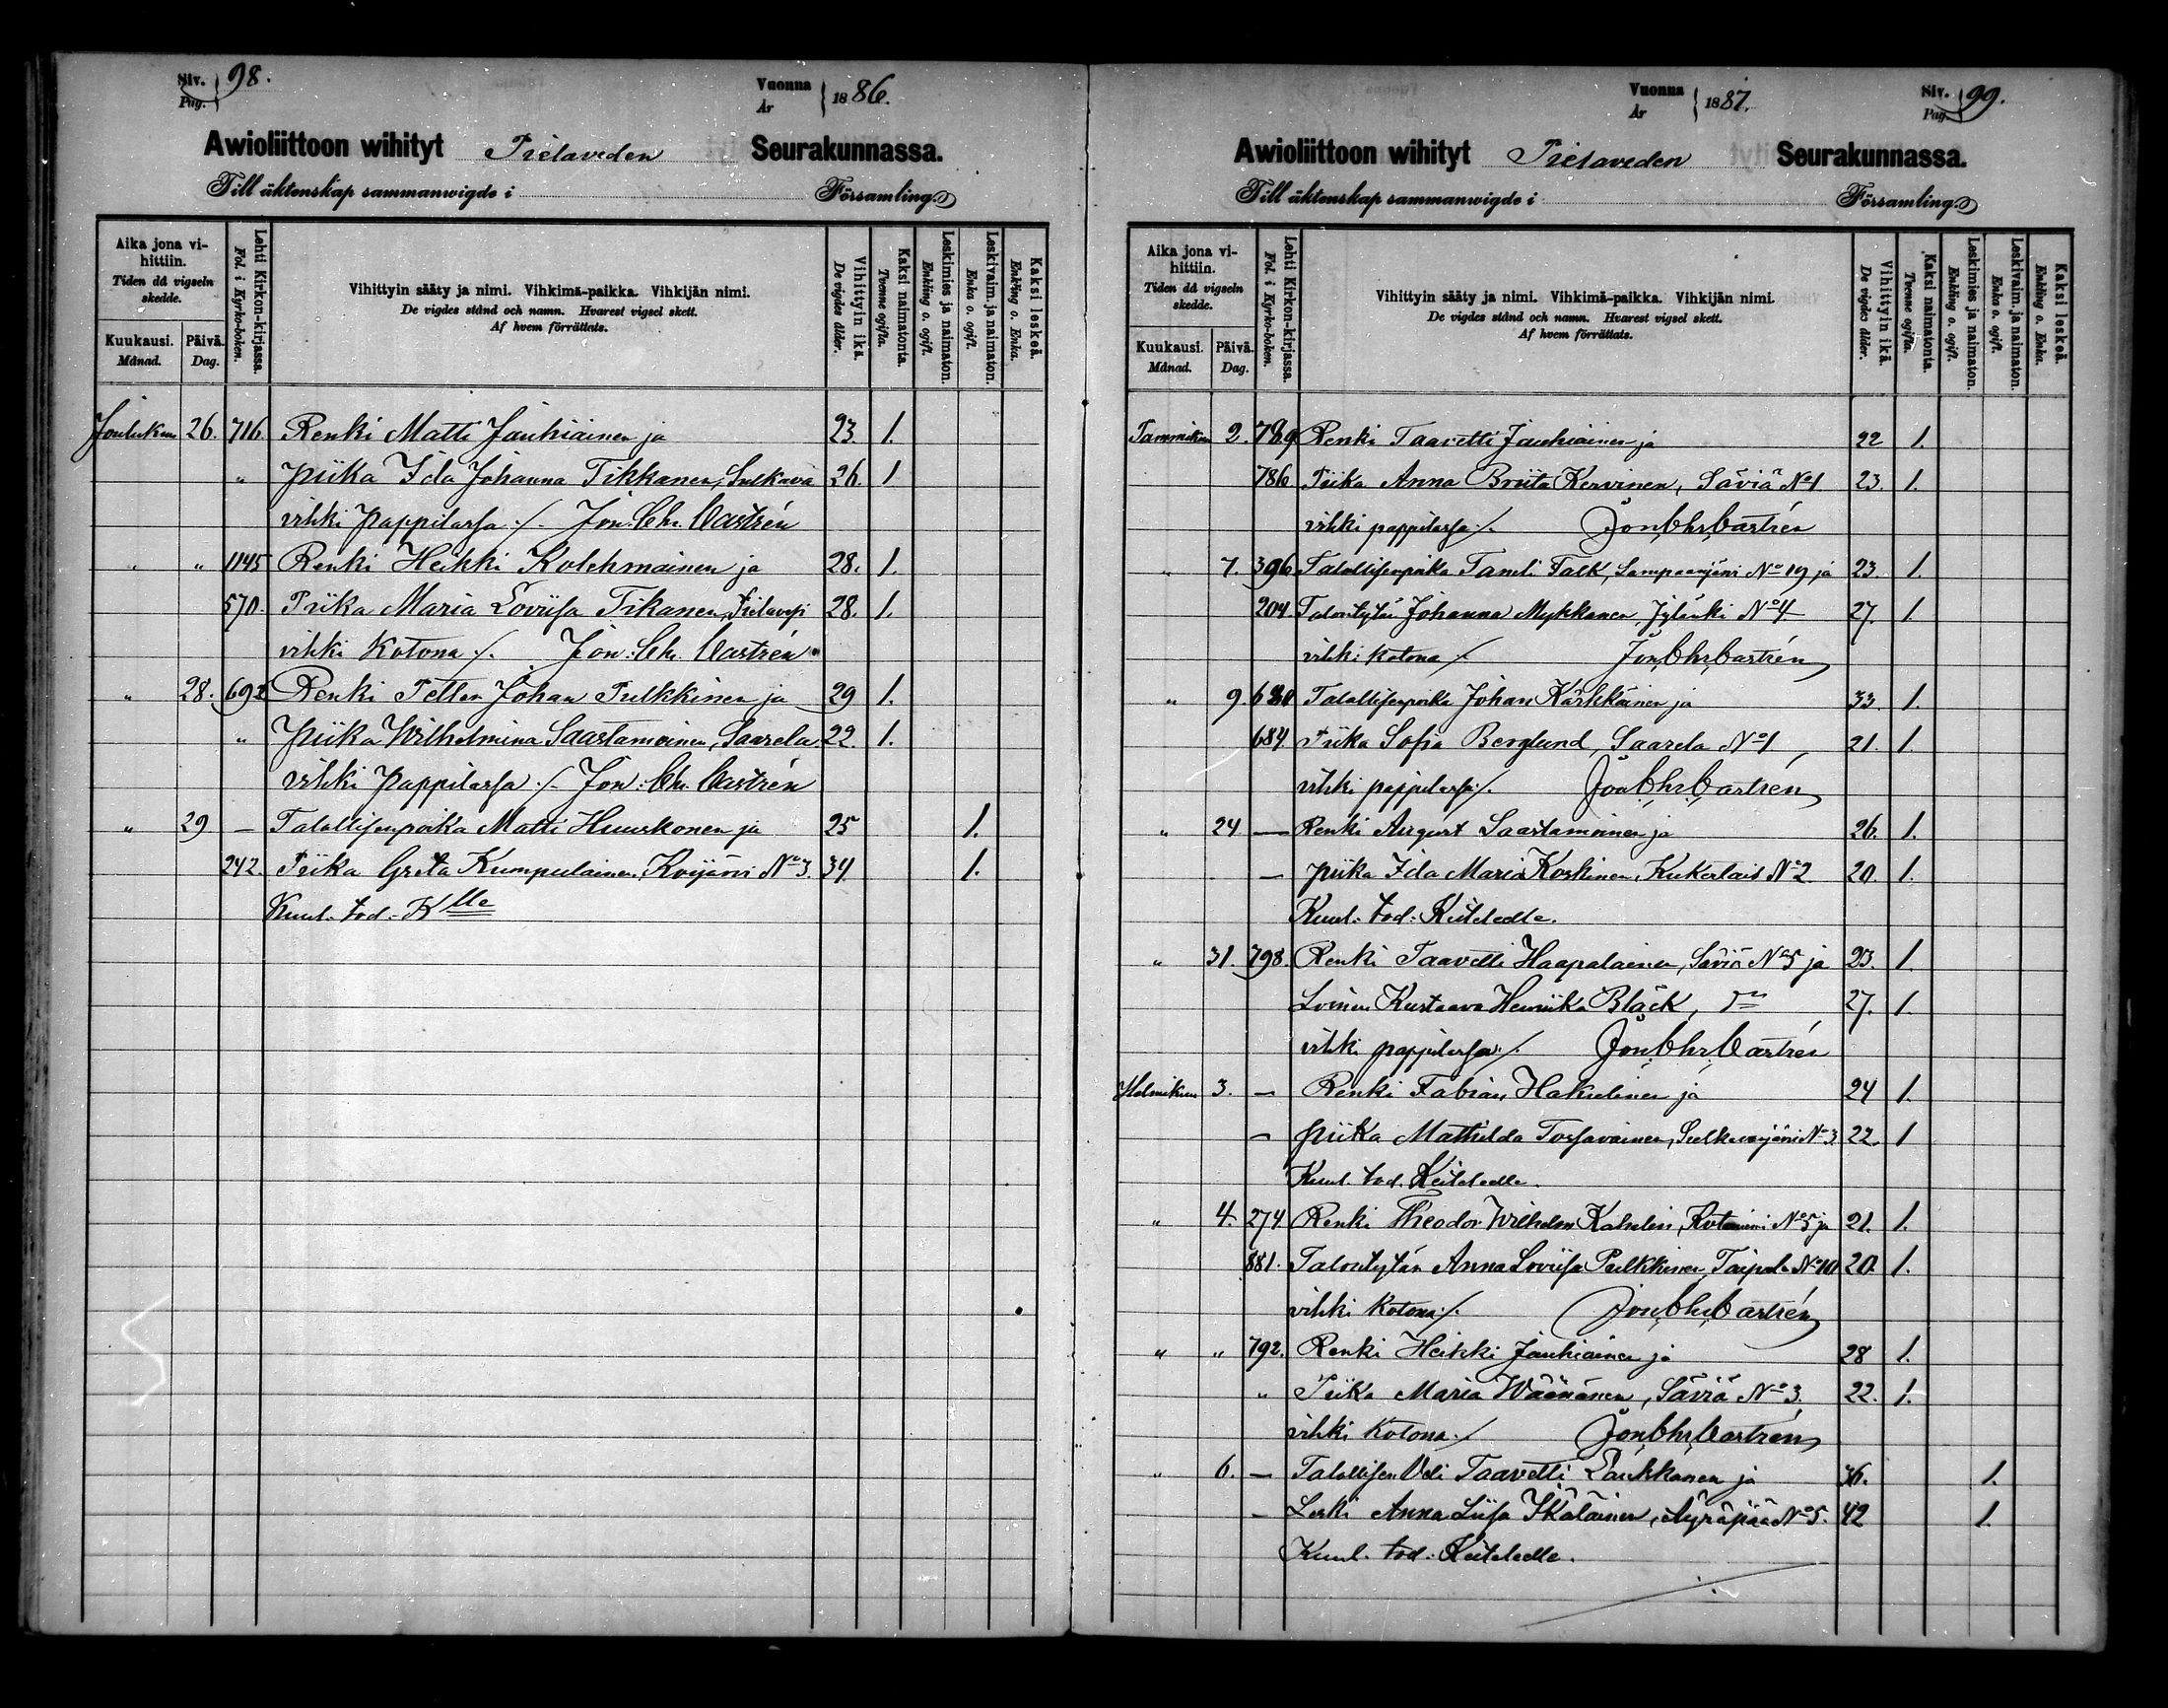 Siv. Pag. } 98.
Vuonna År } 1886.
Awioliittoon wihityt Pielaveden Seurakunnassa.
Till äktenskap sammanwigde i Församling.
Aika jona vihittiin. Tiden då vigseln skedde.
Kuukausi. Månad.
Päivä. Dag.
Lehti Kirkon-kirjassa. Fol. i Kyrko-boken.
Vihittyin sääty ja nimi. Vihkimä-paikka. Vihkijän nimi.
De vigdes stånd och namn. Hvarest vigsel skett.
Af hvem förrättats.
Vihittyin ikä. De vigdes ålder.
Kaksi naimatonta. Tvenne ogifta.
Leskimies ja naimaton. Enkling o. ogift.
Leskivaim. ja naimaton. Enka o. ogift.
Kaksi leskeä. Enkling o. Enka.
Joulukuu 26. 716. Renki Matti Jauhiainen ja 23. 1.
" Piika Ida Johanna Tikkanen, Sulkava 26. 1
vihki pappilassa ./. Jon. Chr. Castrén
" " 1145 Renki Heikki Kolehmainen ja 28. 1.
570. Piika Maria Loviisa Tikanen, Pielavesi 28. 1.
vihki kotona ./. Jon. Chr. Castrén
" 28. 692 Renki Petter Johan Pulkkinen ja 29 1.
" Piika Wilhelmina Saastamoinen, Saarela 22. 1.
vihki pappilassa ./. Jon. Chr. Castrén
" 29 — Talollisenpoika Matti Huuskonen ja 25 1.
242. Piika Greta Kumpulainen, Koijärvi No 3. 34 1.
Kuul. tod. K:lle
Vuonna År } 1887.
Siv. Pag. } 99.
Awioliittoon wihityt Pielaveden Seurakunnassa.
Till äktenskap sammanwigde i Församling.
Aika jona vihittiin. Tiden då vigseln skedde.
Kuukausi. Månad.
Päivä. Dag.
Lehti Kirkon-kirjassa. Fol. i Kyrko-boken.
Vihittyin sääty ja nimi. Vihkimä-paikka. Vihkijän nimi.
De vigdes stånd och namn. Hvarest vigsel skett.
Af hvem förrättats.
Vihittyin ikä. De vigdes ålder.
Kaksi naimatonta. Tvenne ogifta.
Leskimies ja naimaton. Enkling o. ogift.
Leskivaim. ja naimaton. Enka o. ogift.
Kaksi leskeä. Enkling o. Enka.
Tammikuu 2. 789 Renki Taavetti Jauhiainen ja 22 1.
786 Piika Anna Briita Kervinen, Säviä No 1 23. 1.
vihki pappilassa ./. Jon. Chr. Castrén
" 7. 396 Talollisenpoika Tameli Falk, Lampaanjärvi No 19 ja 23. 1.
204 Talontytär Johanna Mykkänen, Jylänki No 4 27. 1.
vihki kotona ./. Jon. Chr. Castrén
" 9. Talollisenpoika Johan Kärkkäinen ja 33. 1.
684. Piika Sofia Berglund, Saarela No 1 21. 1.
vihki pappilassa ./. Jon. Chr. Castrén
" 24 — Renki August Saastamoinen ja 26. 1.
— Piika Ida Maria Koskinen, No 2. 20. 1.
Kuul. tod. Keiteleelle.
" 31. 798. Renki Taavetti Haapalainen, Säviä No 5 ja 23. 1.
Loinen Kustaava Henriika Bläck, 27. 1.
vihki pappilassa ./. Jon. Chr. Castrén
Helmikuu 3. — Renki Fabian Hakulinen ja 24 1.
— Piika Mathilda Tossavainen, Sulkavanjärvi No 3 22. 1
Kuul. tod. Keiteleelle.
" 4. 274. Renki Theodor Wilhelm Kahelin, No 5 ja 21. 1.
881. Talontytär Anna Loviisa Pulkkinen, Taipale No 10 20. 1.
vihki kotona ./. Jon. Chr. Castrén
" " 792. Renki Heikki Jauhiainen ja 28 1.
" Piika Maria Wäänänen, Säviä No 3. 22. 1.
vihki kotona ./. Jon. Chr. Castrén
" 6. — Talollisen Veli Taavetti Laukkanen ja 36. 1.
— Leski Anna Liisa Ikäläinen, Äyräpää No 5. 42 1.
Kuul. tod. Keiteleelle.